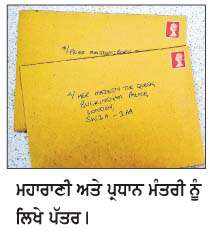 C/O HER MAJESTY THE QUEEN,
BUCKINGHAM PALACE,
LONDON,
SW1A - 1AA
ਮਹਾਰਾਣੀ ਅਤੇ ਪ੍ਰਧਾਨ ਮੰਤਰੀ ਨੂੰ
ਲਿਖੇ ਪੱਤਰ।